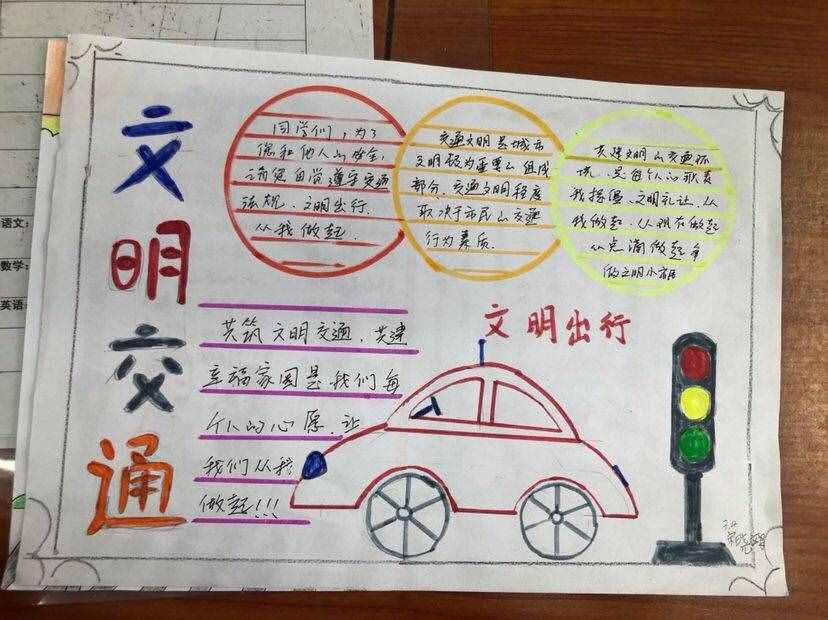 文明交通
同学们，为了
您和他人的安全，
请您自觉遵守交通
法规、文明出行.
从我做起.
交通文明是城市
文明极为重要的组成
部分，交通文明程度
取决于市民的交通
行为素质.
共建文明的交通环
境，是每个人的职责
我提倡、文明礼让、从
我做起、从现在做起
从点滴做起争
做文明小市民
文明出行
共筑文明交通、共建
幸福家园是我们每
个人的心愿、让
我们从我
做起!!!
语文:
数学:
英语: